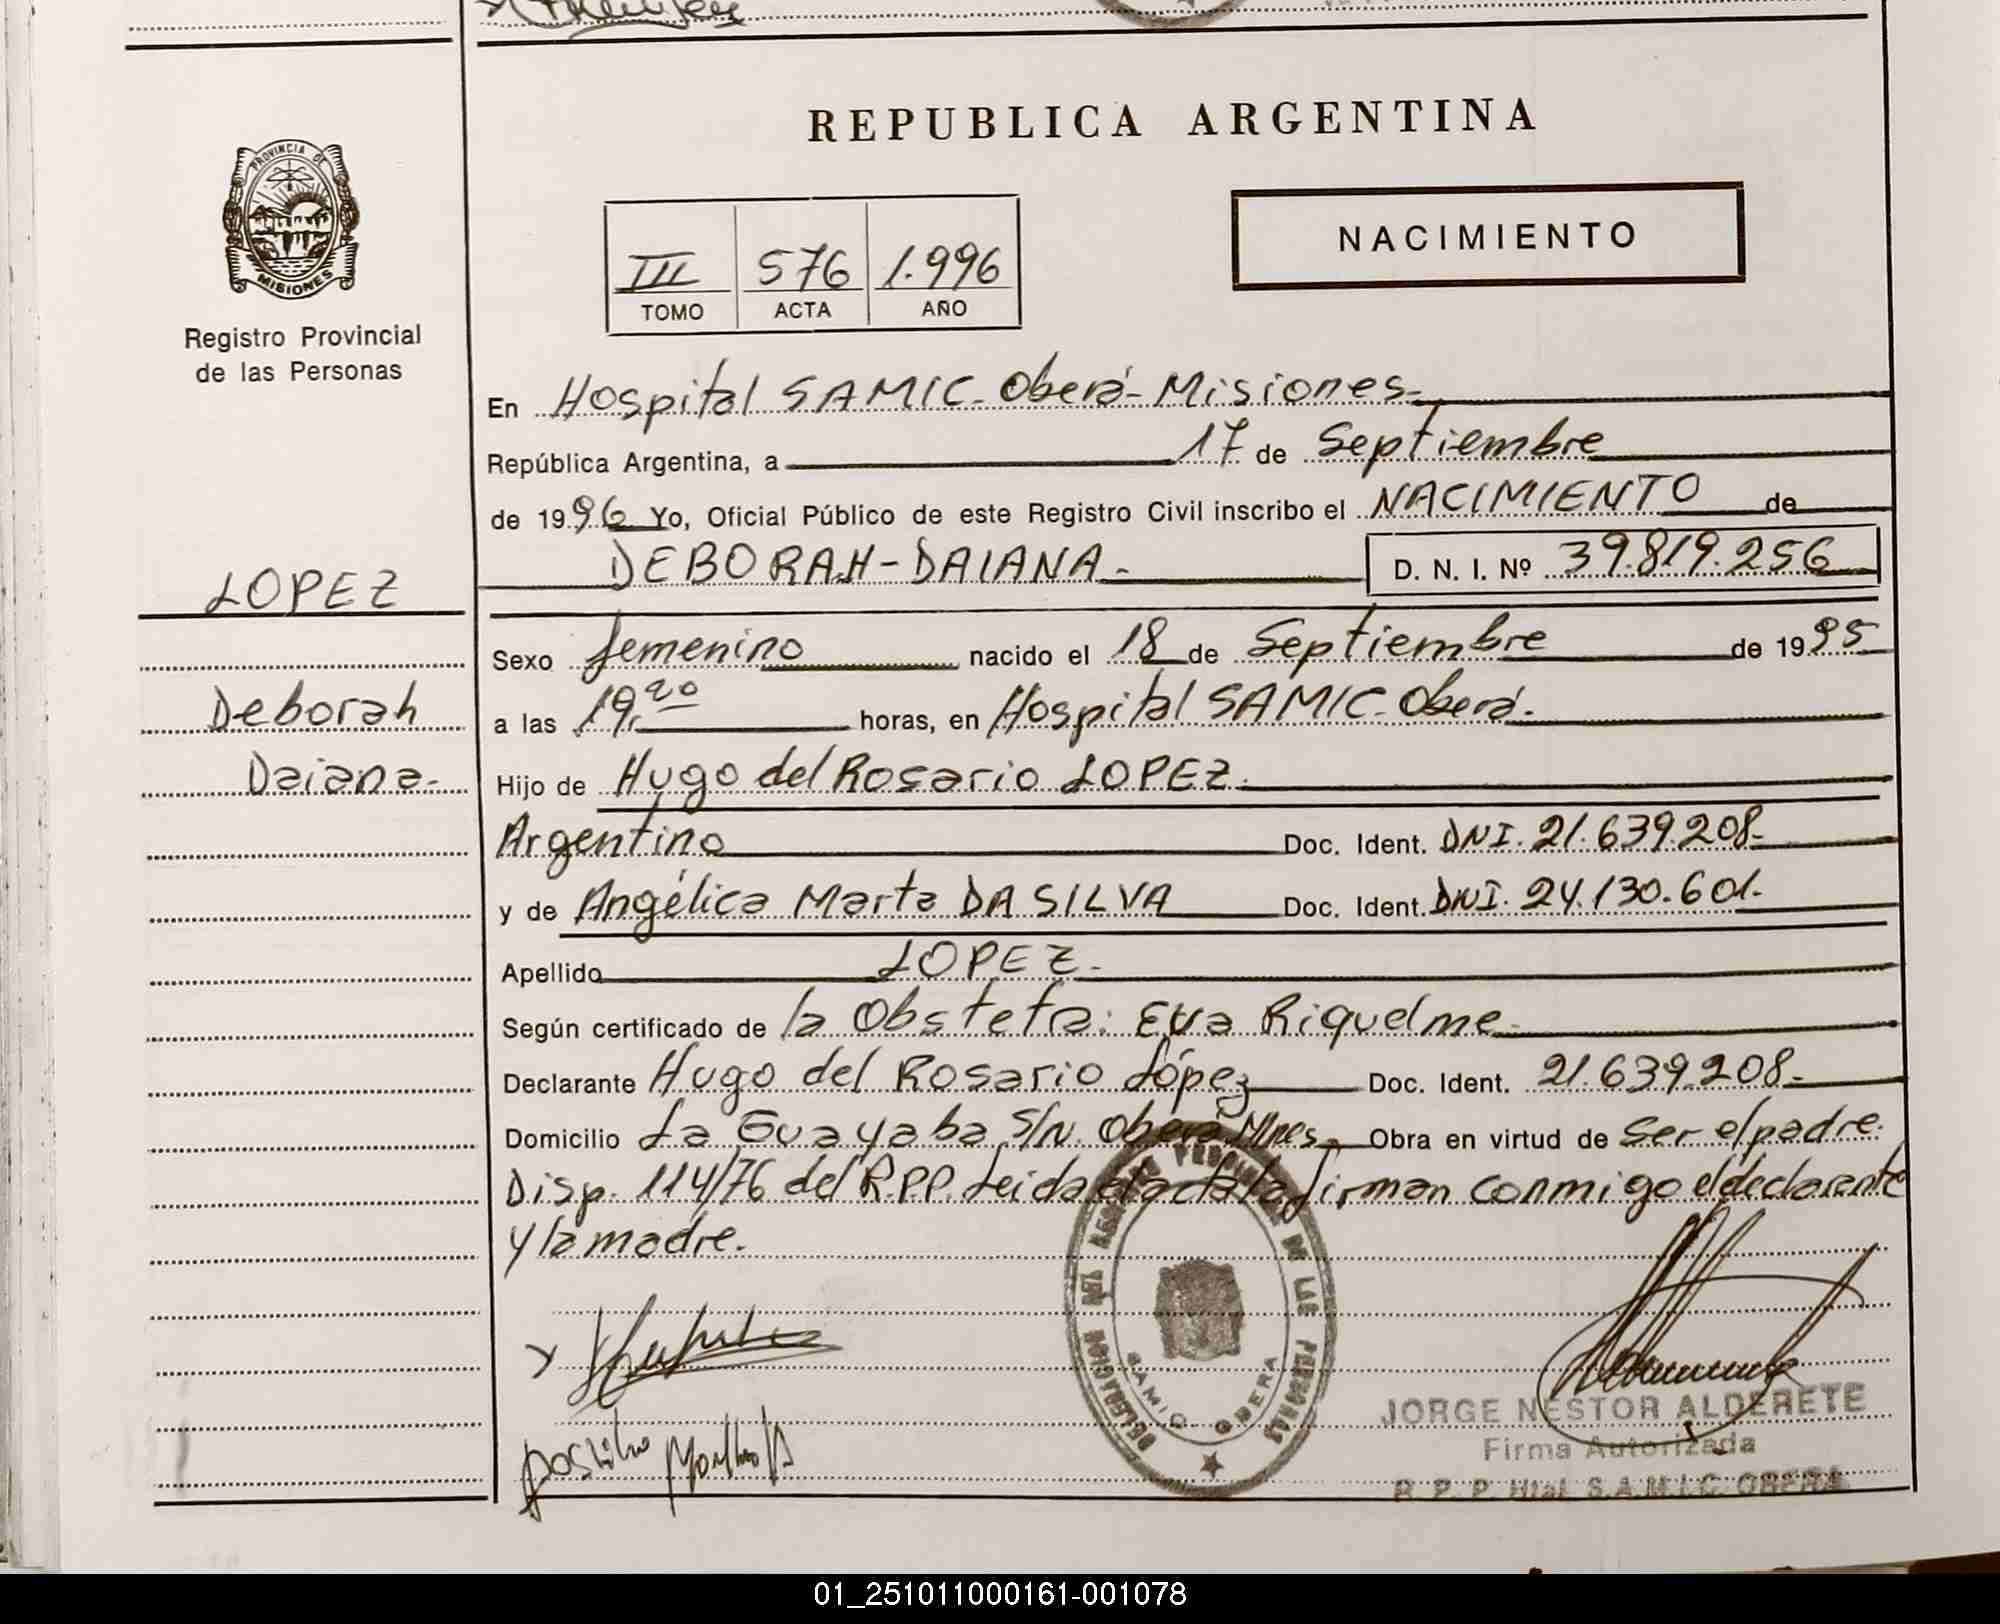 REPUBLICA ARGENTINA
PROVINCIA DE
MISIONES
Registro Provincial
de las Personas
NACIMIENTO
III 576 1.996
TOMO ACTA AÑO
En Hospital SAMIC. Oberá- Misiones.
República Argentina, a 17 de Septiembre
de 1996 Yo, Oficial Público de este Registro Civil inscribo el NACIMIENTO de
DEBORAH-DAIANA.- D. N. I. Nº 39.819.256
LOPEZ
Deborah
Daiana-
Sexo femenino nacido el 18 de Septiembre de 1995
a las 19.20 horas, en Hospital SAMIC. Oberá.
Hijo de Hugo del Rosario LOPEZ.
Argentino Doc. Ident. DNI. 21.639.208-
y de Angélica Marta DA SILVA Doc. Ident. DNI. 24.130.601.
Apellido LOPEZ.-
Según certificado de la Obsteta: Eva Riquelme-
Declarante Hugo del Rosario López Doc. Ident. 21.639.208.-
Domicilio La Guayaba S/N. Oberá Mnes, Obra en virtud de ser el padre.
Disp. 114/76 del R.P.P. Leida el acta la firman conmigo el declarante
y la madre.
DELEGACION DEL REGISTRO PROVINCIAL DE LAS PERSONAS
SAMIC OBERA
JORGE NESTOR ALDERETE
Firma Autorizada
R. P. P. Htal. S.A.M.I.C. OBERA
01_251011000161-001078